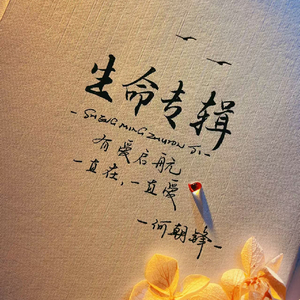 生命专辑
- SHENG MING ZHUAN JI -
有爱启航
一直在，一直爱
- 何朝锋 -